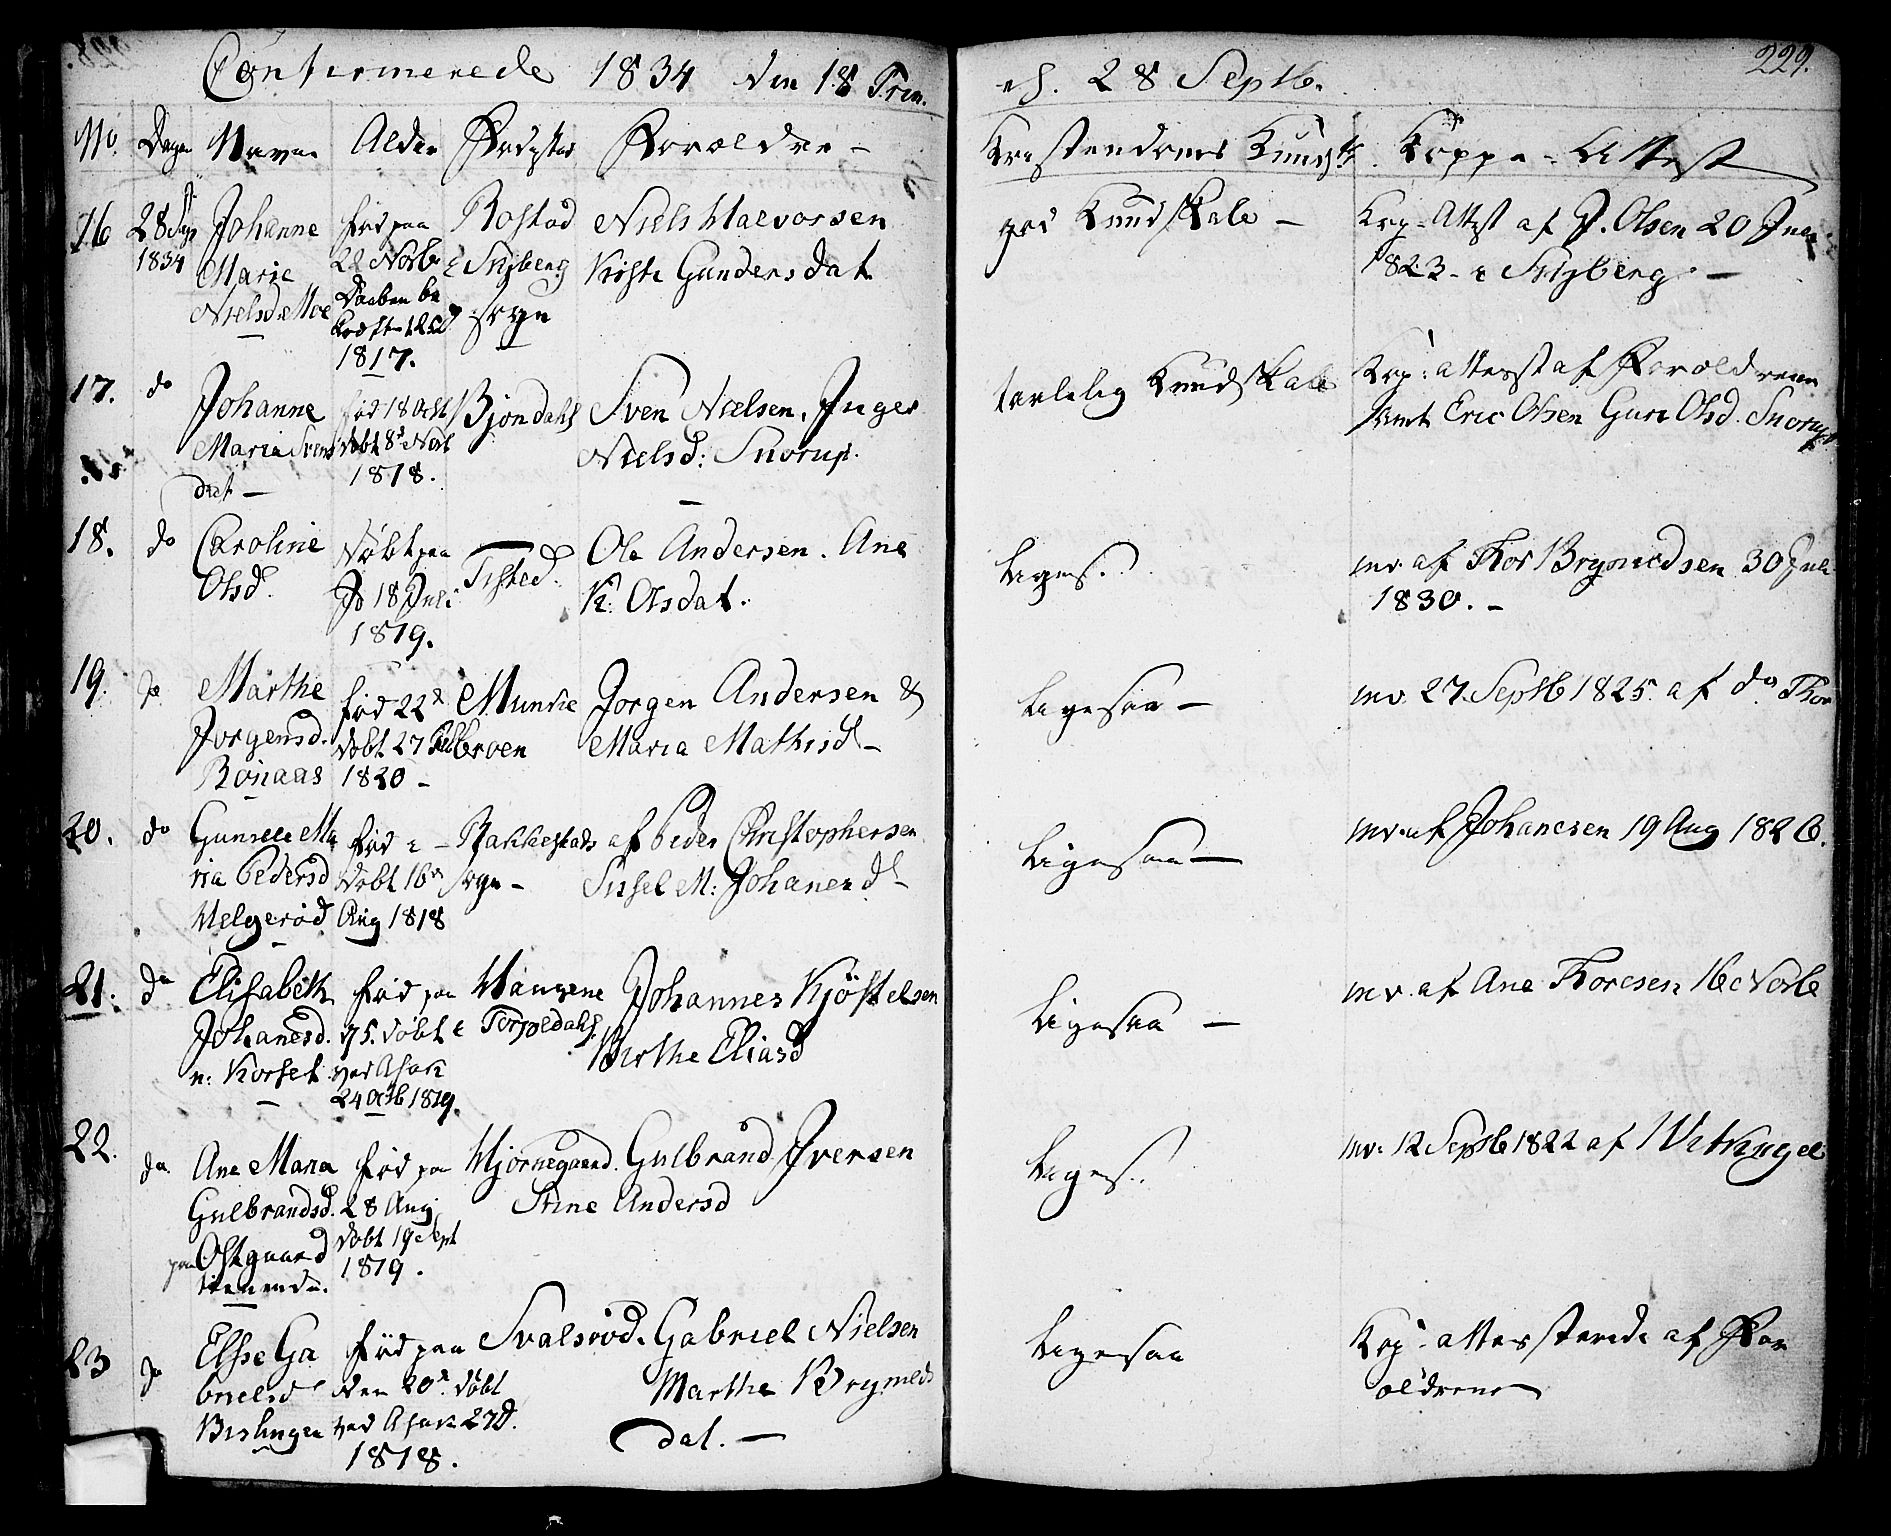 Confirmerede 1834 den 18 Trin.
eft. 28 Septb.
229.
No. Dagen Navne Alder Fødested Forældre
Kristendoms Kundsk. Koppe-Attest
16 28 Sep 1834
Johanne
Marie
Nielsd. Moe
fød paa
22 Novb
Daaben be
1817.
Rostad
i Skjberg
sogn
Niels Halvorsen
Kirsti Gundersdat
god Kundskab
Kop-Attest af J. Olsen 20 Juni
1823 i Skjberg
17. do
Johanne
Maria Svens
dat
fød 18 Octb
døbt 8 Novb
1818.
Bjøndahl
Sven Nielsen, Inger
Nielsd: Snorup.
taalelig Kundskab
Kop: attest af Forældrene
samt Eric Olsen Guri Olsd. Snorup
18. do
Caroline
Olsd.
døbt paa
Id 18 Juli
1819.
Tisted.
Ole Andersen. Ane
K: Olsdat.
liges.
mv. af Thor Brynildsen 30 Juli
1830.
19. do
Marthe
Jorgensd.
Rønaas
fød 22d
døbt 27 Feb
1820
Munke
broen
Jorgen Andersen &
Maria Mathisd
ligesaa
mv. 27. Septb 1825. af do. Thor
20. do
Gunelle Ma
ria Pedersd
Helgerød
fød i
døbt 16d
Aug 1818
Rakkestads
sogn
af Peder Christophersen
Sissel M: Johanesd
ligesaa
mv. af Johanesen 19 Aug 1826.
21. do
Elisabeth
Johanesd.
n: Korset
fød paa
15. døbt
ved Asak
24 Octb 1819.
Haugene
i Torpedahl
Johannes Kjøstelsen
Birthe Eliasd
ligesaa
mv. af Ane Thoresen 16 Novb
22. do
Ane Maria
Gulbrandsd.
paa Ostgaard
tienende.
fød paa
28 Aug
døbt 19 Sept
1819.
Hjørnegaard. Gulbrand Iversen
Stine Andersd
liges.
mv. 12 Septb 1822 af
23 do
Elsse Ga
brielsd
Bislingen
fød paa
den 20d. døbt
ved Asak 27d.
1818.
Svalsrod. Gabriel Nielsen
Marthe Brynilds
dat.
ligesaa
Kop: attesterede af For
ældrene